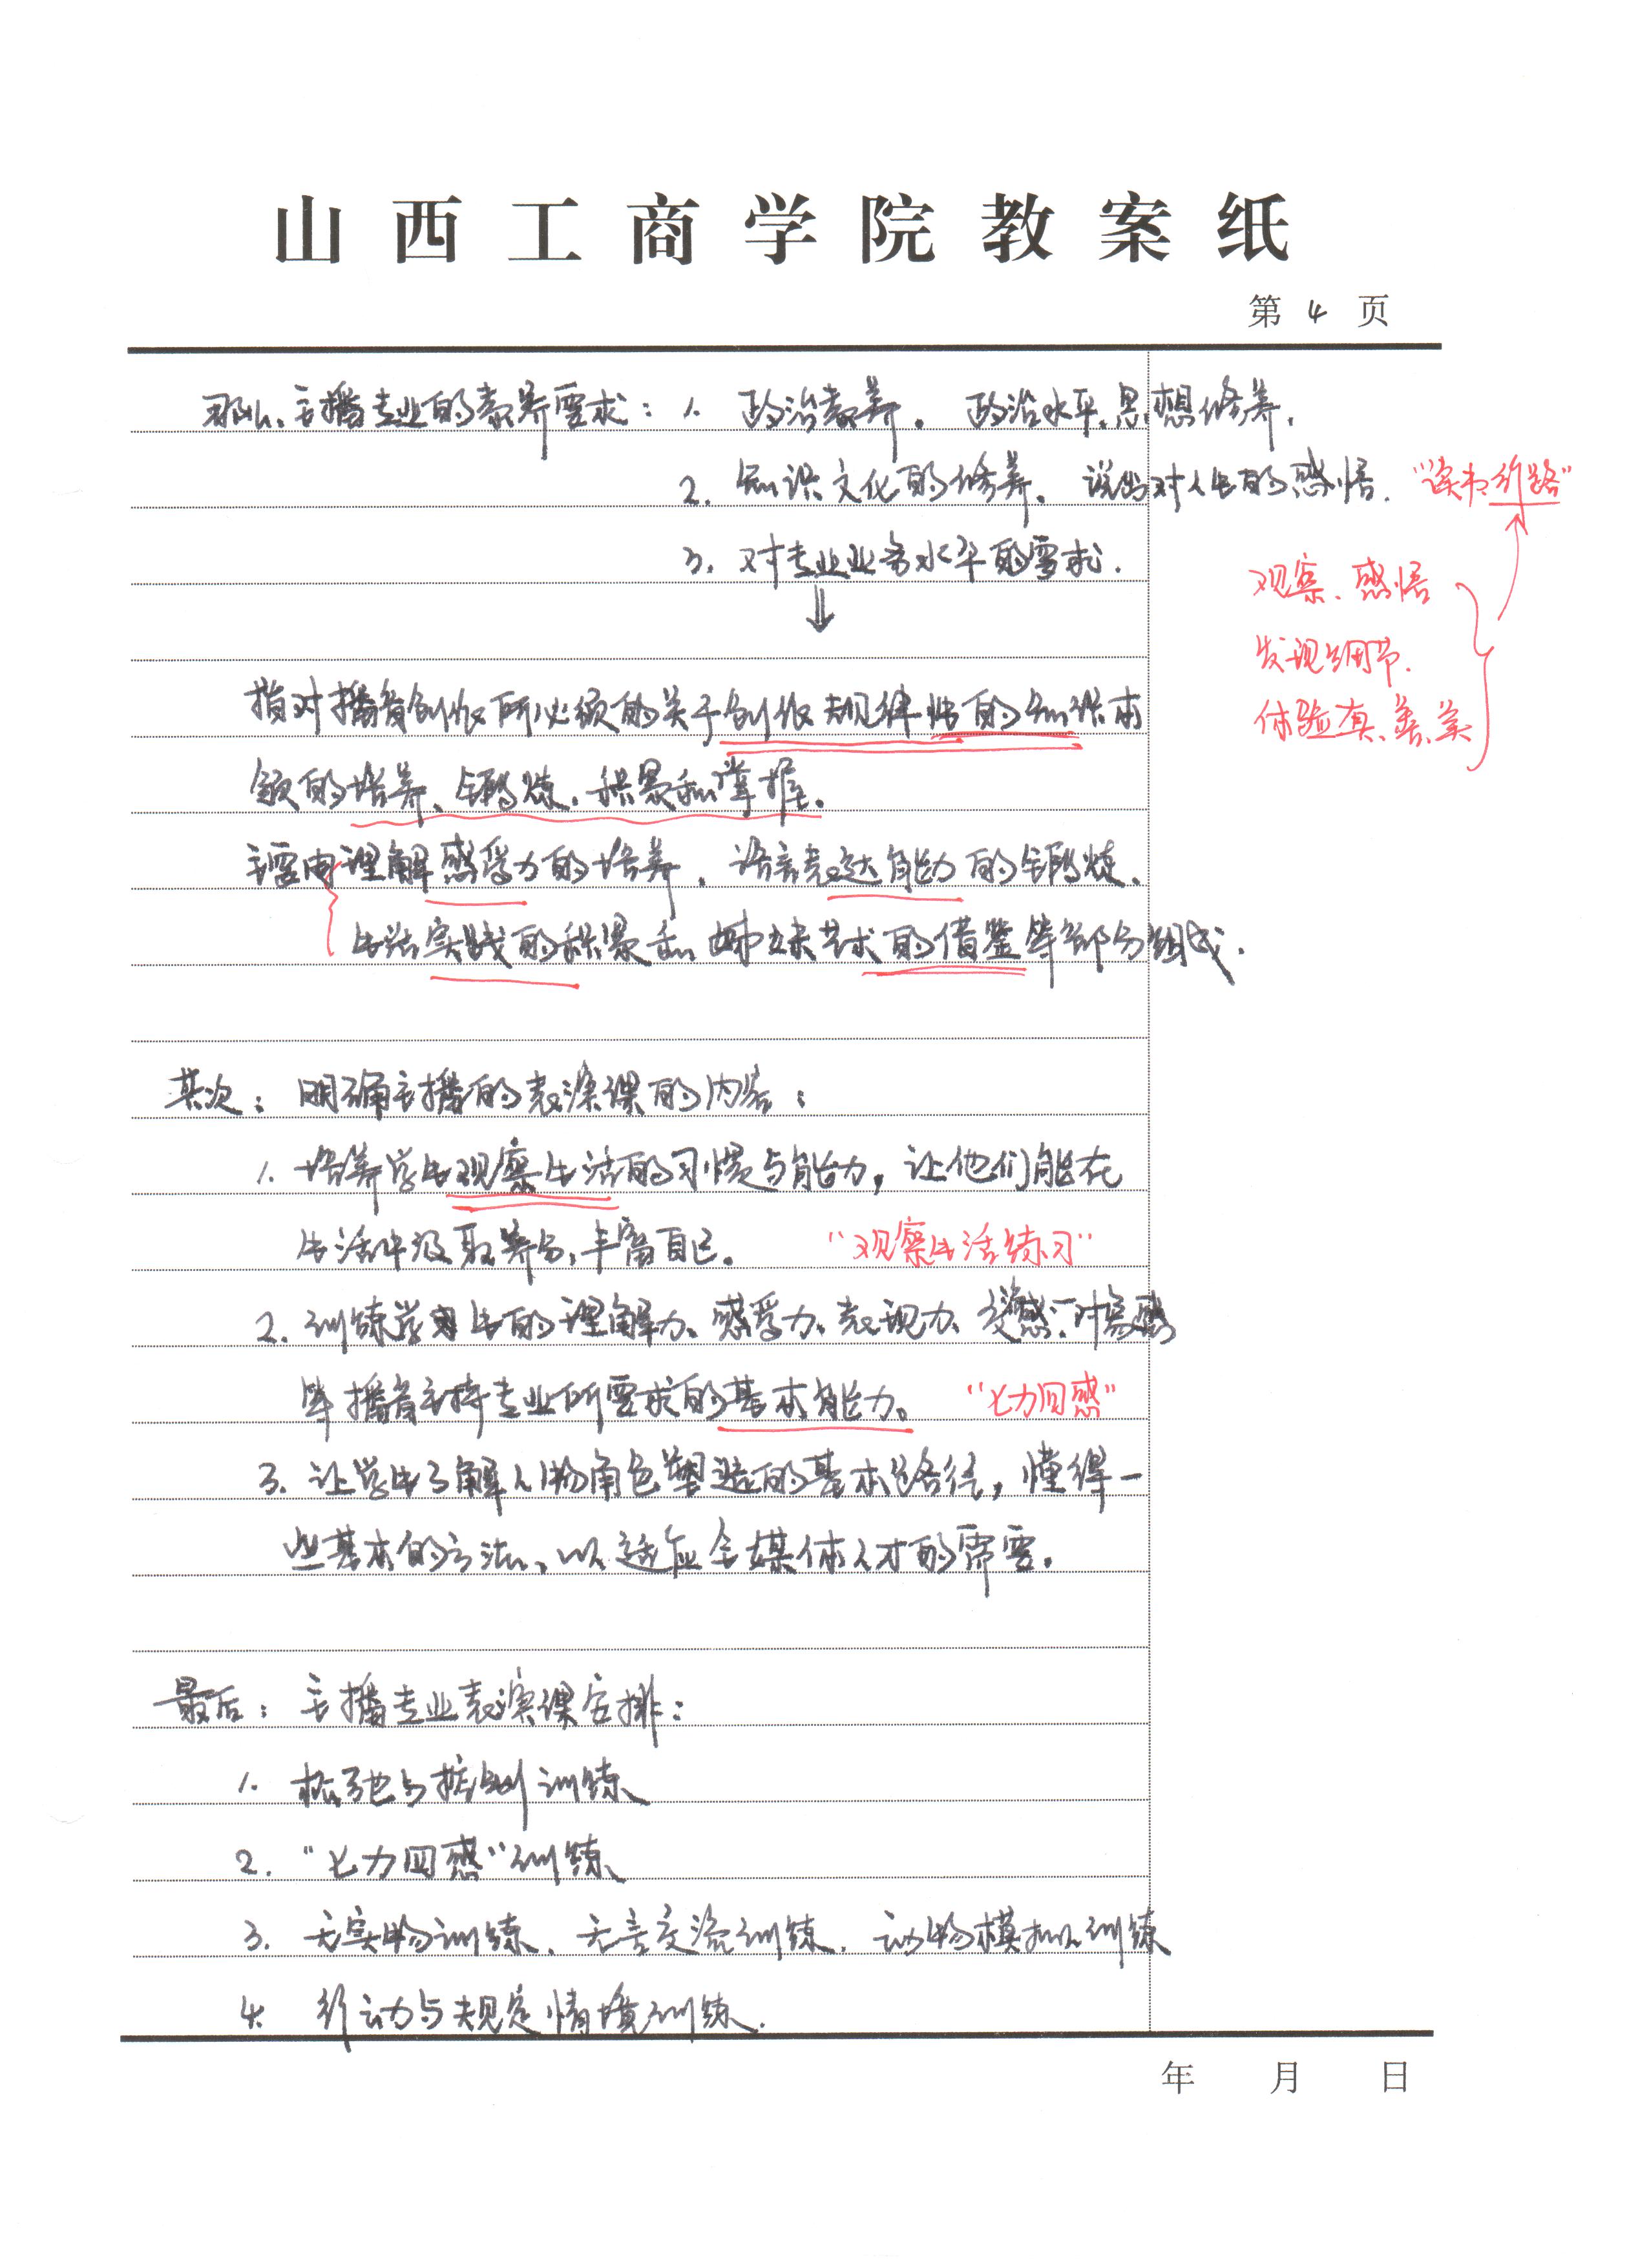 山西工商学院教案纸
第 4 页
那么、主播专业的素养要求：1. 政治素养。 政治水平、思想修养，
2. 知识文化的修养。 说出对人生的感悟. “读书行路”
3. 对专业业务水平的要求.
⇓
观察、感悟
发现细节.
体验真、善、美
指对播音创作所必须的关于创作规律性的知识本
领的培养、锻炼、积累和掌握。
主要由理解感受力的培养、语言表达能力的锻炼、
生活实践的积累和姊妹艺术的借鉴等部分组成.
其次：明确主播的表演课的内容：
1. 培养学生观察生活的习惯与能力，让他们能在
生活中汲取养分，丰富自己。 “观察生活练习”
2. 训练学生的理解力、感受力、表现力、交流感、对象感
等播音主持专业所要求的基本能力。 “七力四感”
3. 让学生了解人物角色塑造的基本路径，懂得一
些基本的方法，以适应全媒体人才的需要。
最后：主播专业表演课安排：
1. 松弛与控制训练
2. “七力四感”训练
3. 无实物训练、无言交流训练、动物模拟训练
4. 行动与规定情境训练.
年 月 日